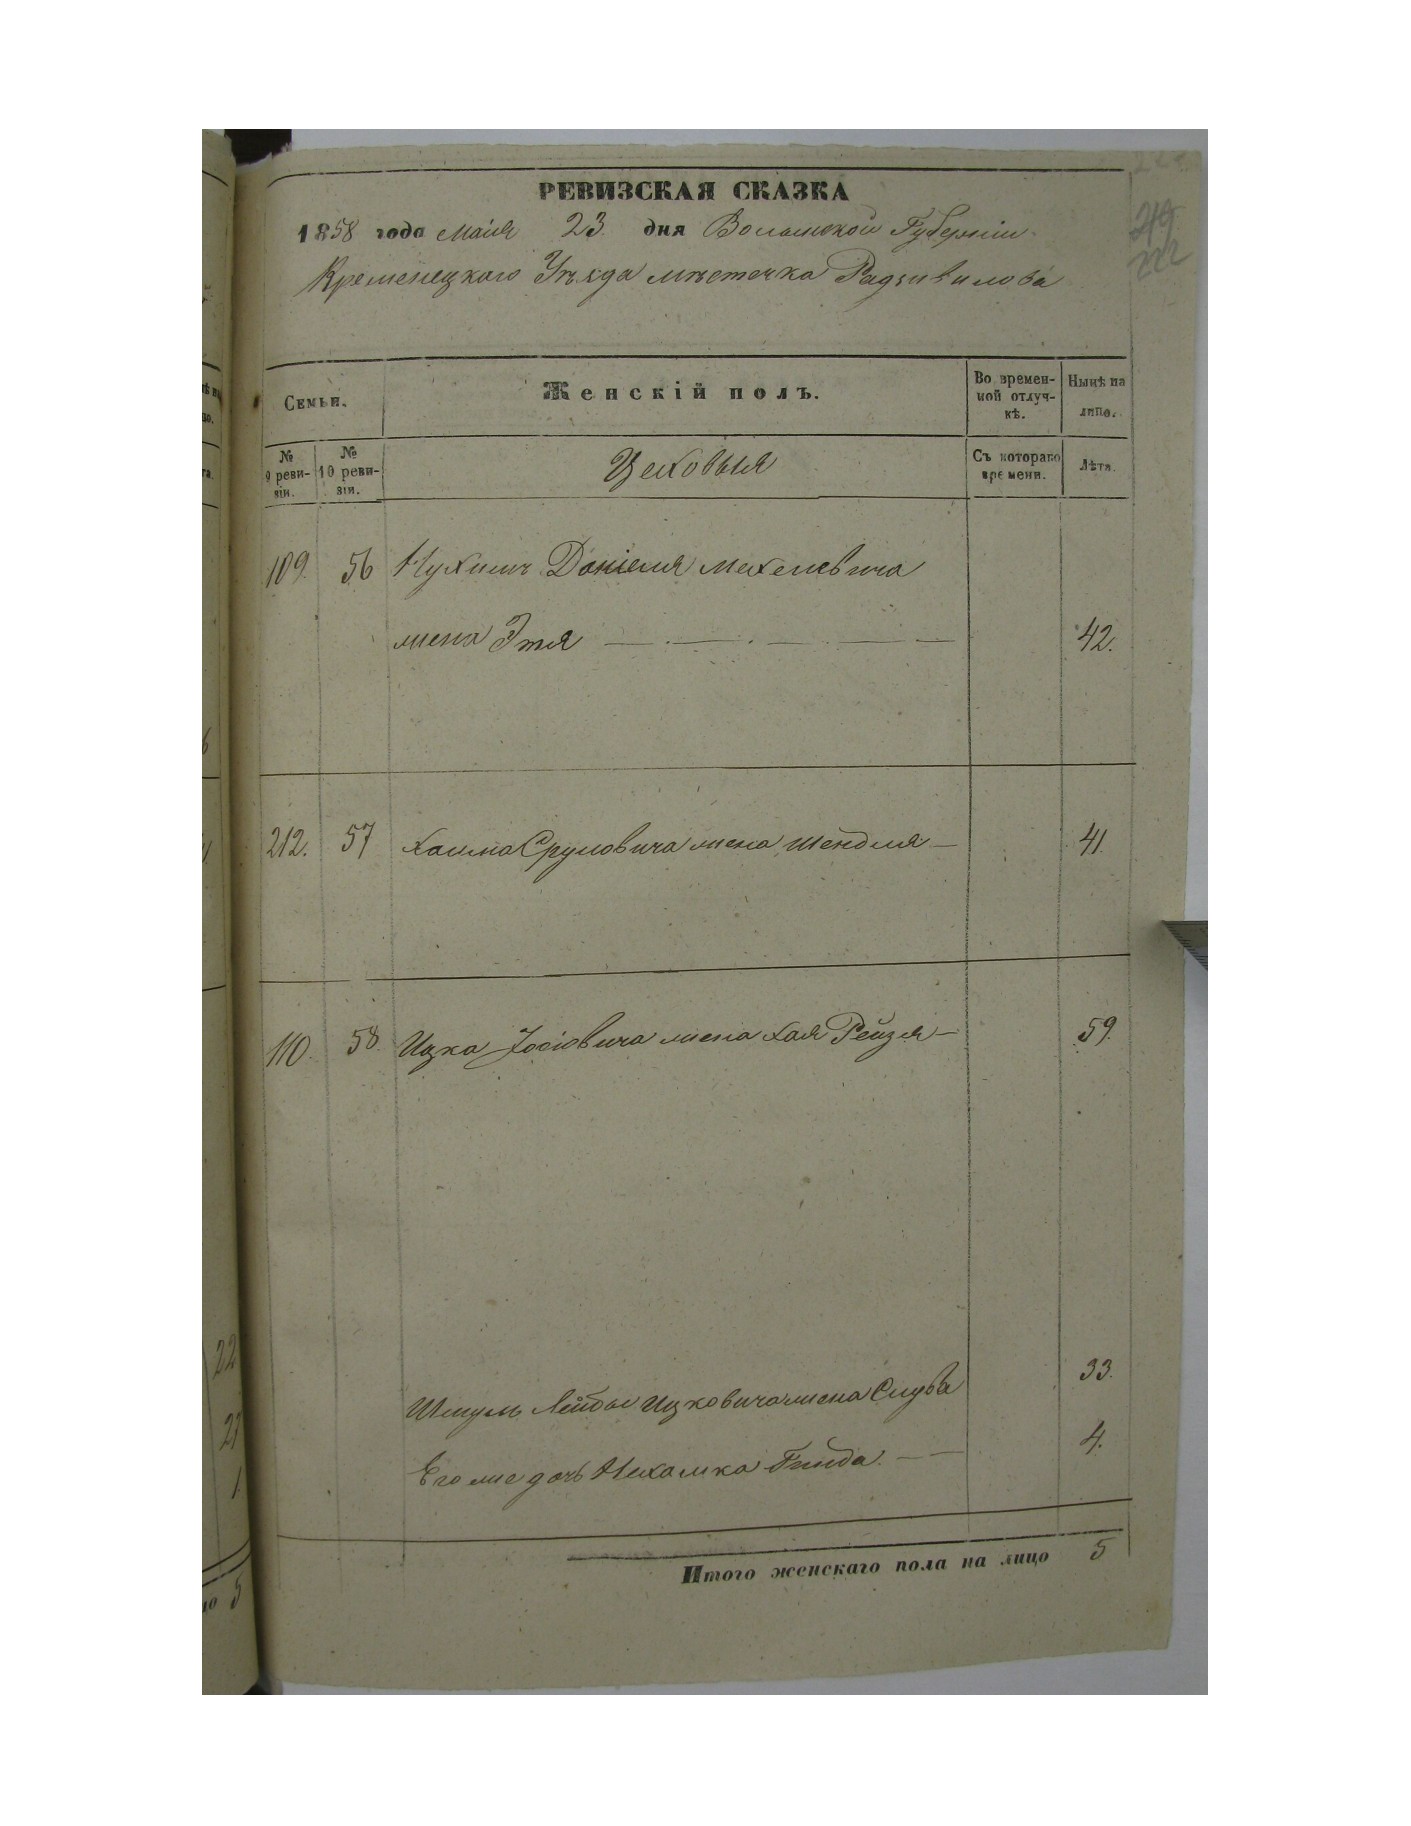 РЕВИЗСКАЯ СКАЗКА
1858 года Маія 23 дня Волынской Губерніи
Кременецкого Уѣзда мѣстечка Радзивилова
Семьи.
Женскій полъ.
Во времен-
ной отлуч-
кѣ.
Нынѣ на
лицо.
№
9 реви-
зіи.
№
10 реви-
зіи.
Цеховыя
Съ котораго
времени.
Лѣта.
109. 56 Нухимъ Даніеля Мехелевича
жена Этя 42.
212. 57 Хаима Сруловича жена Шендля 41.
110. 58. Ицка Іосіовича жена Хая Рейзя 59.
Шмуль Лейбы Ицковича жена Слува 33.
Его же дочь Нехамка Гинда 4.
Итого женскаго пола на лицо 5
22
1
5